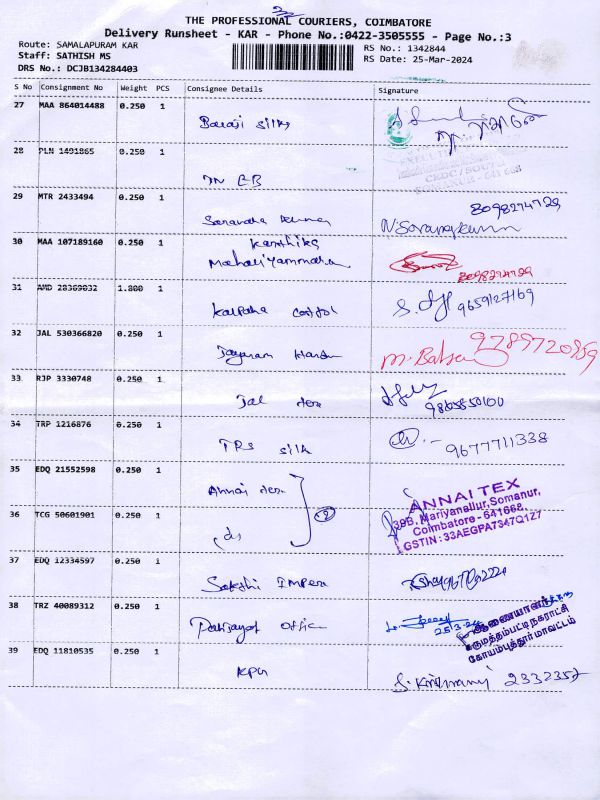 THE PROFESSIONAL COURIERS, COIMBATORE
Delivery Runsheet - KAR - Phone No.:0422-3505555 - Page No.:3
Route: SAMALAPURAM KAR
RS No.: 1342844
Staff: SATHISH MS
RS Date: 25-Mar-2024
DRS No.: DCJB134284403
S No Consignment No Weight PCS Consignee Details Signature
27 MAA 864014488 0.250 1
Silks
28 PLN 1491865 0.250 1
TN EB
29 MTR 2433494 0.250 1
8098274729
N Saravanakumar
30 MAA 107189160 0.250 1 Karthika
Mahaliyammana
8098274729
31 AMD 28369032 1.800 1
9659127169
32 JAL 530366820 0.250 1
Jayaram
9789720959
33 RJP 3330748 0.250 1
Jai tex
9865550100
34 TRP 1216876 0.250 1
TRS silk
9677711338
35 EDQ 21552598 0.250 1
Annai tex
ANNAI TEX
39B, Mariyanallur, Somanur,
Coimbatore - 641668.
GSTIN : 33AEGPA7347Q1Z7
36 TCG 50601901 0.250 1
2
37 EDQ 12334597 0.250 1
Sakshi Impex
38 TRZ 40089312 0.250 1
Office
25/3/24
ஆணையாளர்
கருமத்தம்பட்டி நகராட்சி
கோயம்புத்தூர் மாவட்டம்
39 EDQ 11810535 0.250 1
KPG
2332357